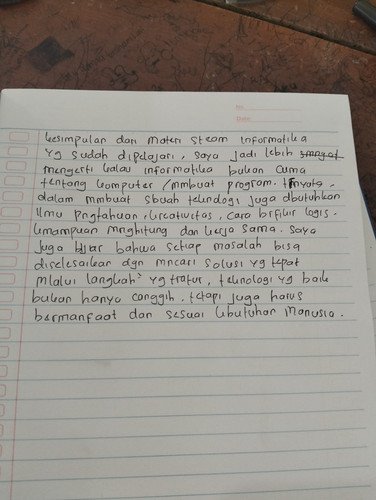 kesimpulan dari materi steam informatika
yg sudah dipelajari, saya jadi lebih
mengerti kalau informatika bukan cuma
tentang komputer / mmbuat program. trnyata,
dalam mmbuat sbuah teknologi juga dbutuhkan
ilmu pngtahuan, kreativitas, cara brfikir logis.
kmampuan mnghitung dan kerja sama. saya
juga bljar bahwa setiap masalah bisa
diselesaikan dgn mncari solusi yg tepat
mlalui langkah² yg tratur, teknologi yg baik
bukan hanya canggih, tetapi juga harus
bermanfaat dan sesuai kbutuhan manusia.